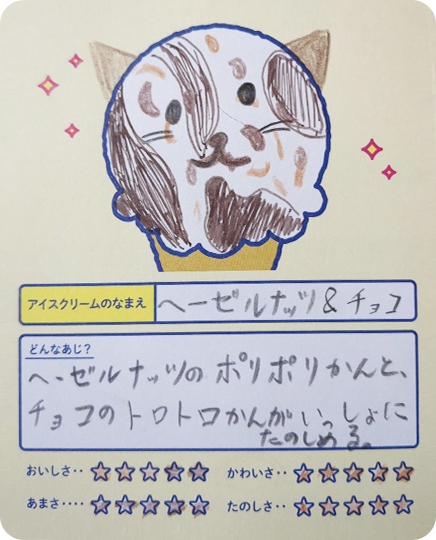 アイスクリームのなまえ ヘーゼルナッツ&チョコ
どんなあじ?
ヘーゼルナッツのポリポリかんと、
チョコのトロトロかんがいっしょに
たのしめる。
おいしさ‥ ☆☆☆☆☆ かわいさ‥ ☆☆☆☆☆
あまさ‥‥ ☆☆☆☆☆ たのしさ‥ ☆☆☆☆☆